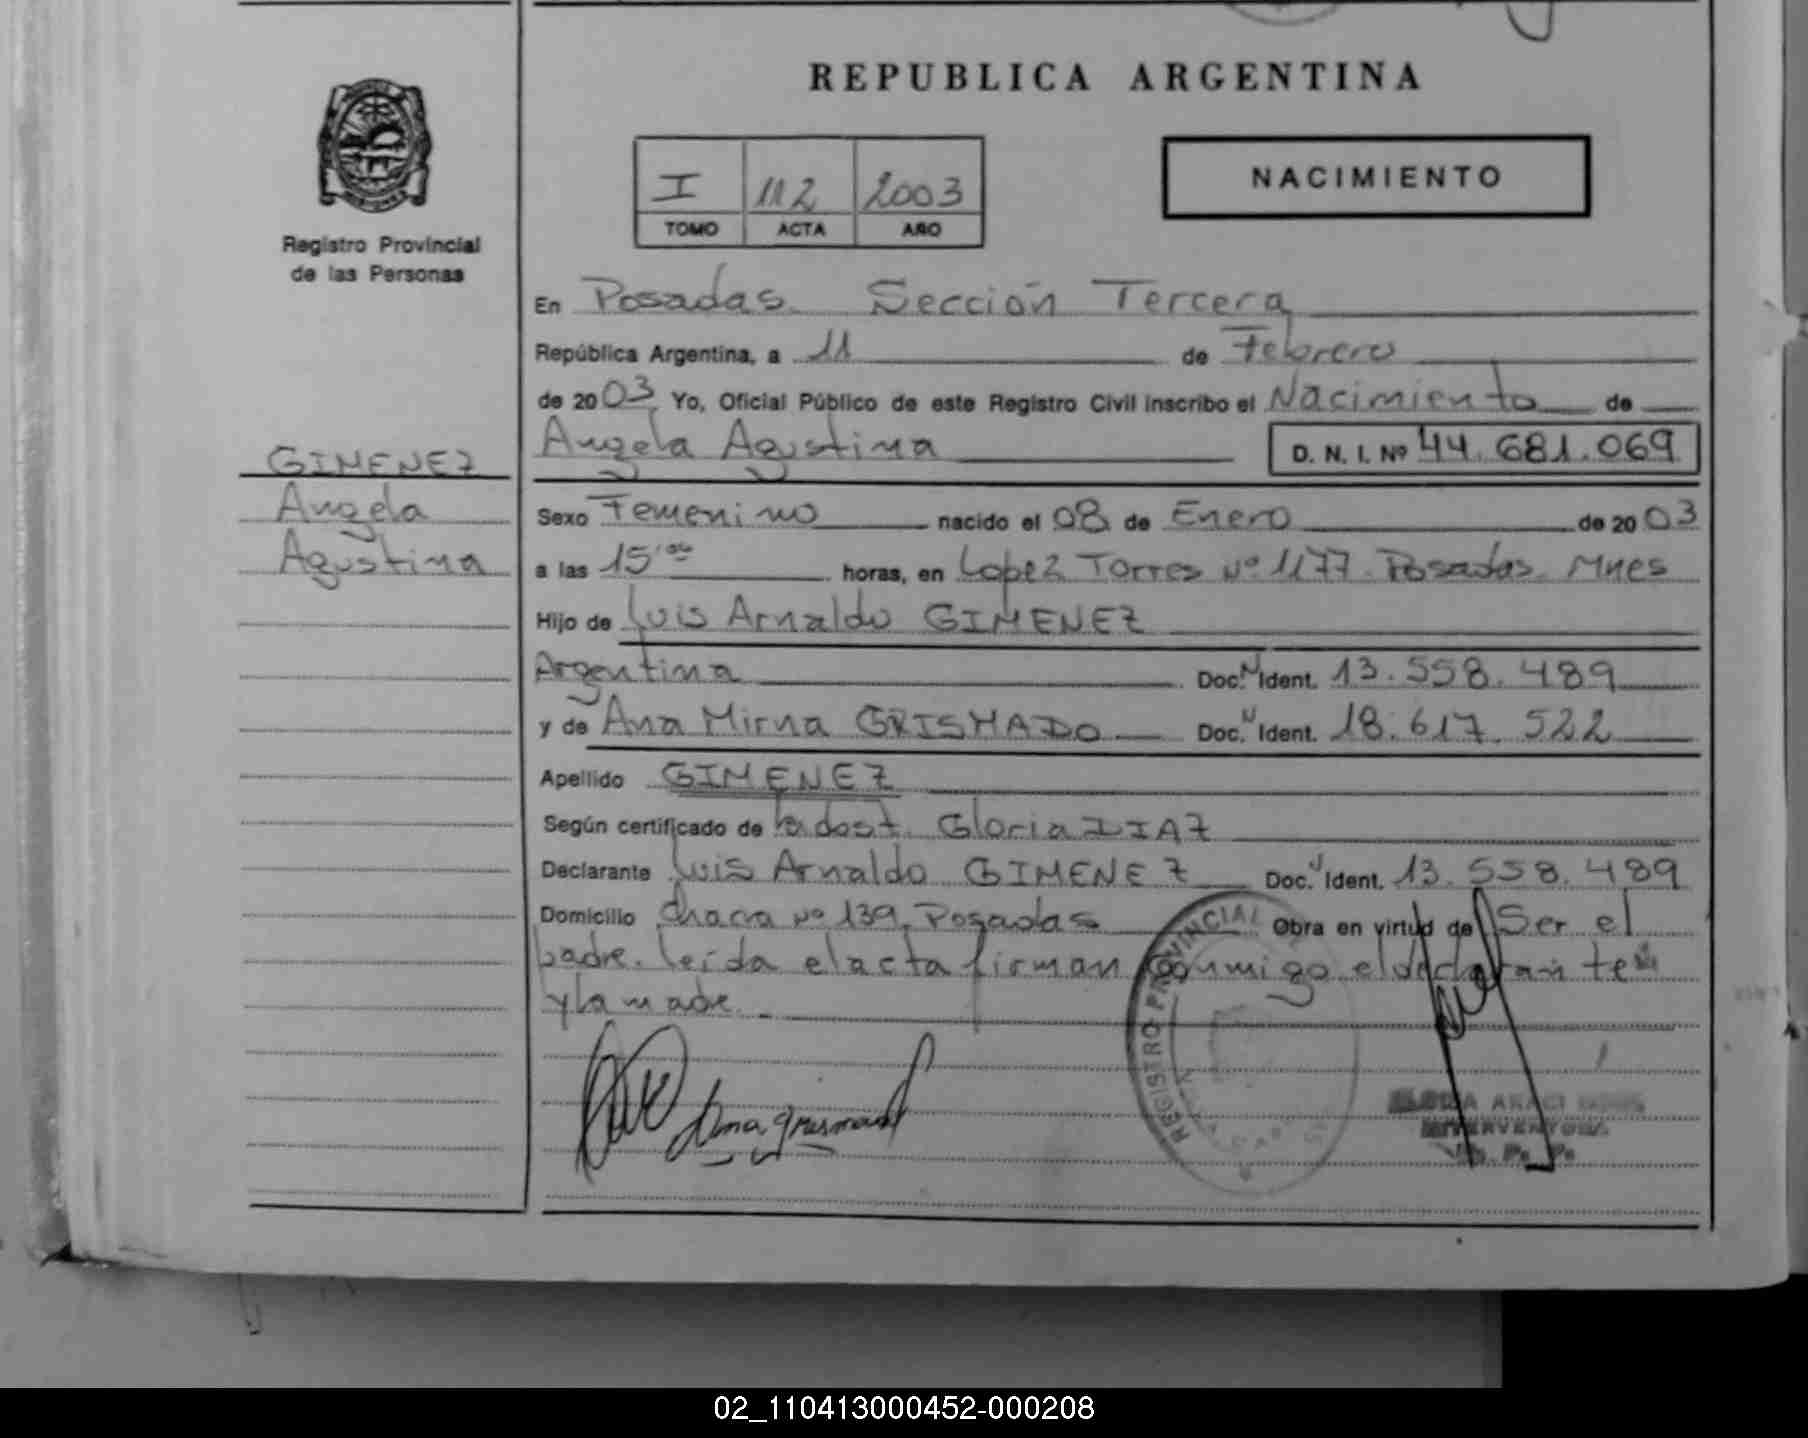 REPUBLICA ARGENTINA
I 112 2003
TOMO ACTA AÑO
NACIMIENTO
Registro Provincial
de las Personas
GIMENEZ
Angela
Agustina
En Posadas. Sección Tercera
República Argentina, a 11 de Febrero
de 2003 Yo, Oficial Público de este Registro Civil inscribo el Nacimiento de
Angela Agustina D. N. I. Nº 44.681.069
Sexo Femenino nacido el 08 de Enero de 2003
a las 15,00 horas, en Lopez Torres Nº 1177. Posadas. Mnes
Hijo de Luis Arnaldo GIMENEZ
Argentina Doc. N Ident. 13.558.489
y de Ana Mirna GRISMADO Doc. N Ident. 18.617.522
Apellido GIMENEZ
Según certificado de Gloria DIAZ
Declarante Luis Arnaldo GIMENEZ Doc. Ident. 13.558.489
Domicilio Chacra Nº 139, Posadas Obra en virtud de Ser el
padre. leída el acta firman conmigo el declarante
y la madre.
REGISTRO PROVINCIAL
02_110413000452-000208